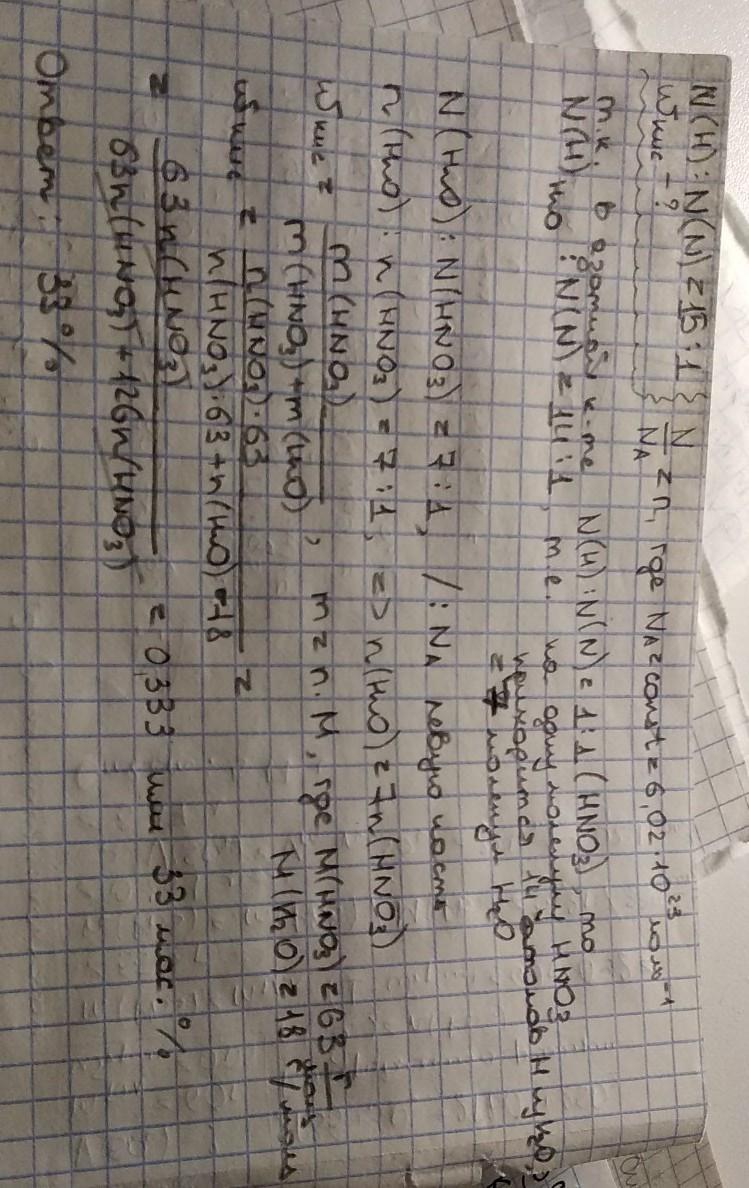 N(H) : N(N) = 15 : 1 } N/NA = n, где NA = const = 6,02·10²³ моль⁻¹
Wкис - ?
т.к. в азотной к-те N(H):N(N) = 1:1 (HNO₃), то
N(H)H₂O : N(N) = 14:1, т.е. на одну молекулу HNO₃
приходится 14 атомов H из H₂O, =>
= 7 молекул H₂O
N(H₂O) : N(HNO₃) = 7:1, /: NA левую часть
n(H₂O) : n(HNO₃) = 7:1, => n(H₂O) = 7n(HNO₃)
Wкис = m(HNO₃) / m(HNO₃)+m(H₂O) , m = n·M, где M(HNO₃) = 63 г/моль
M(H₂O) = 18 г/моль
Wкис = n(HNO₃)·63 / n(HNO₃)·63+n(H₂O)·18 =
= 63n(HNO₃) / 63n(HNO₃)+126n(HNO₃) = 0,333 или 33 мас. %
Ответ: 33%